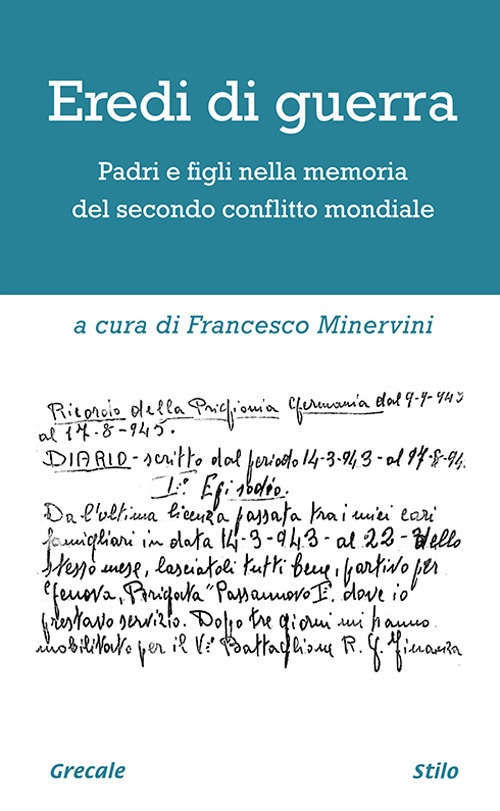 Eredi di guerra
Padri e figli nella memoria
del secondo conflitto mondiale
a cura di Francesco Minervini
Ricordo della Prigionia Germania dal 9-9-943
al 17-8-945.
DIARIO - scritto dal periodo 14-3-943 - al 17-8-94.
I° Episodio.
Da l'ultima licenza passata tra i miei cari
famigliari in data 14-3-943 - al 22- dello
stesso mese, lasciatoli tutti bene, partivo per
Genova, Brigata "Passannovo I°. dove io
prestavo servizio. Dopo tre giorni mi fanno
mobilitato per il V° Battaglione R. G. Finanza
Grecale
Stilo